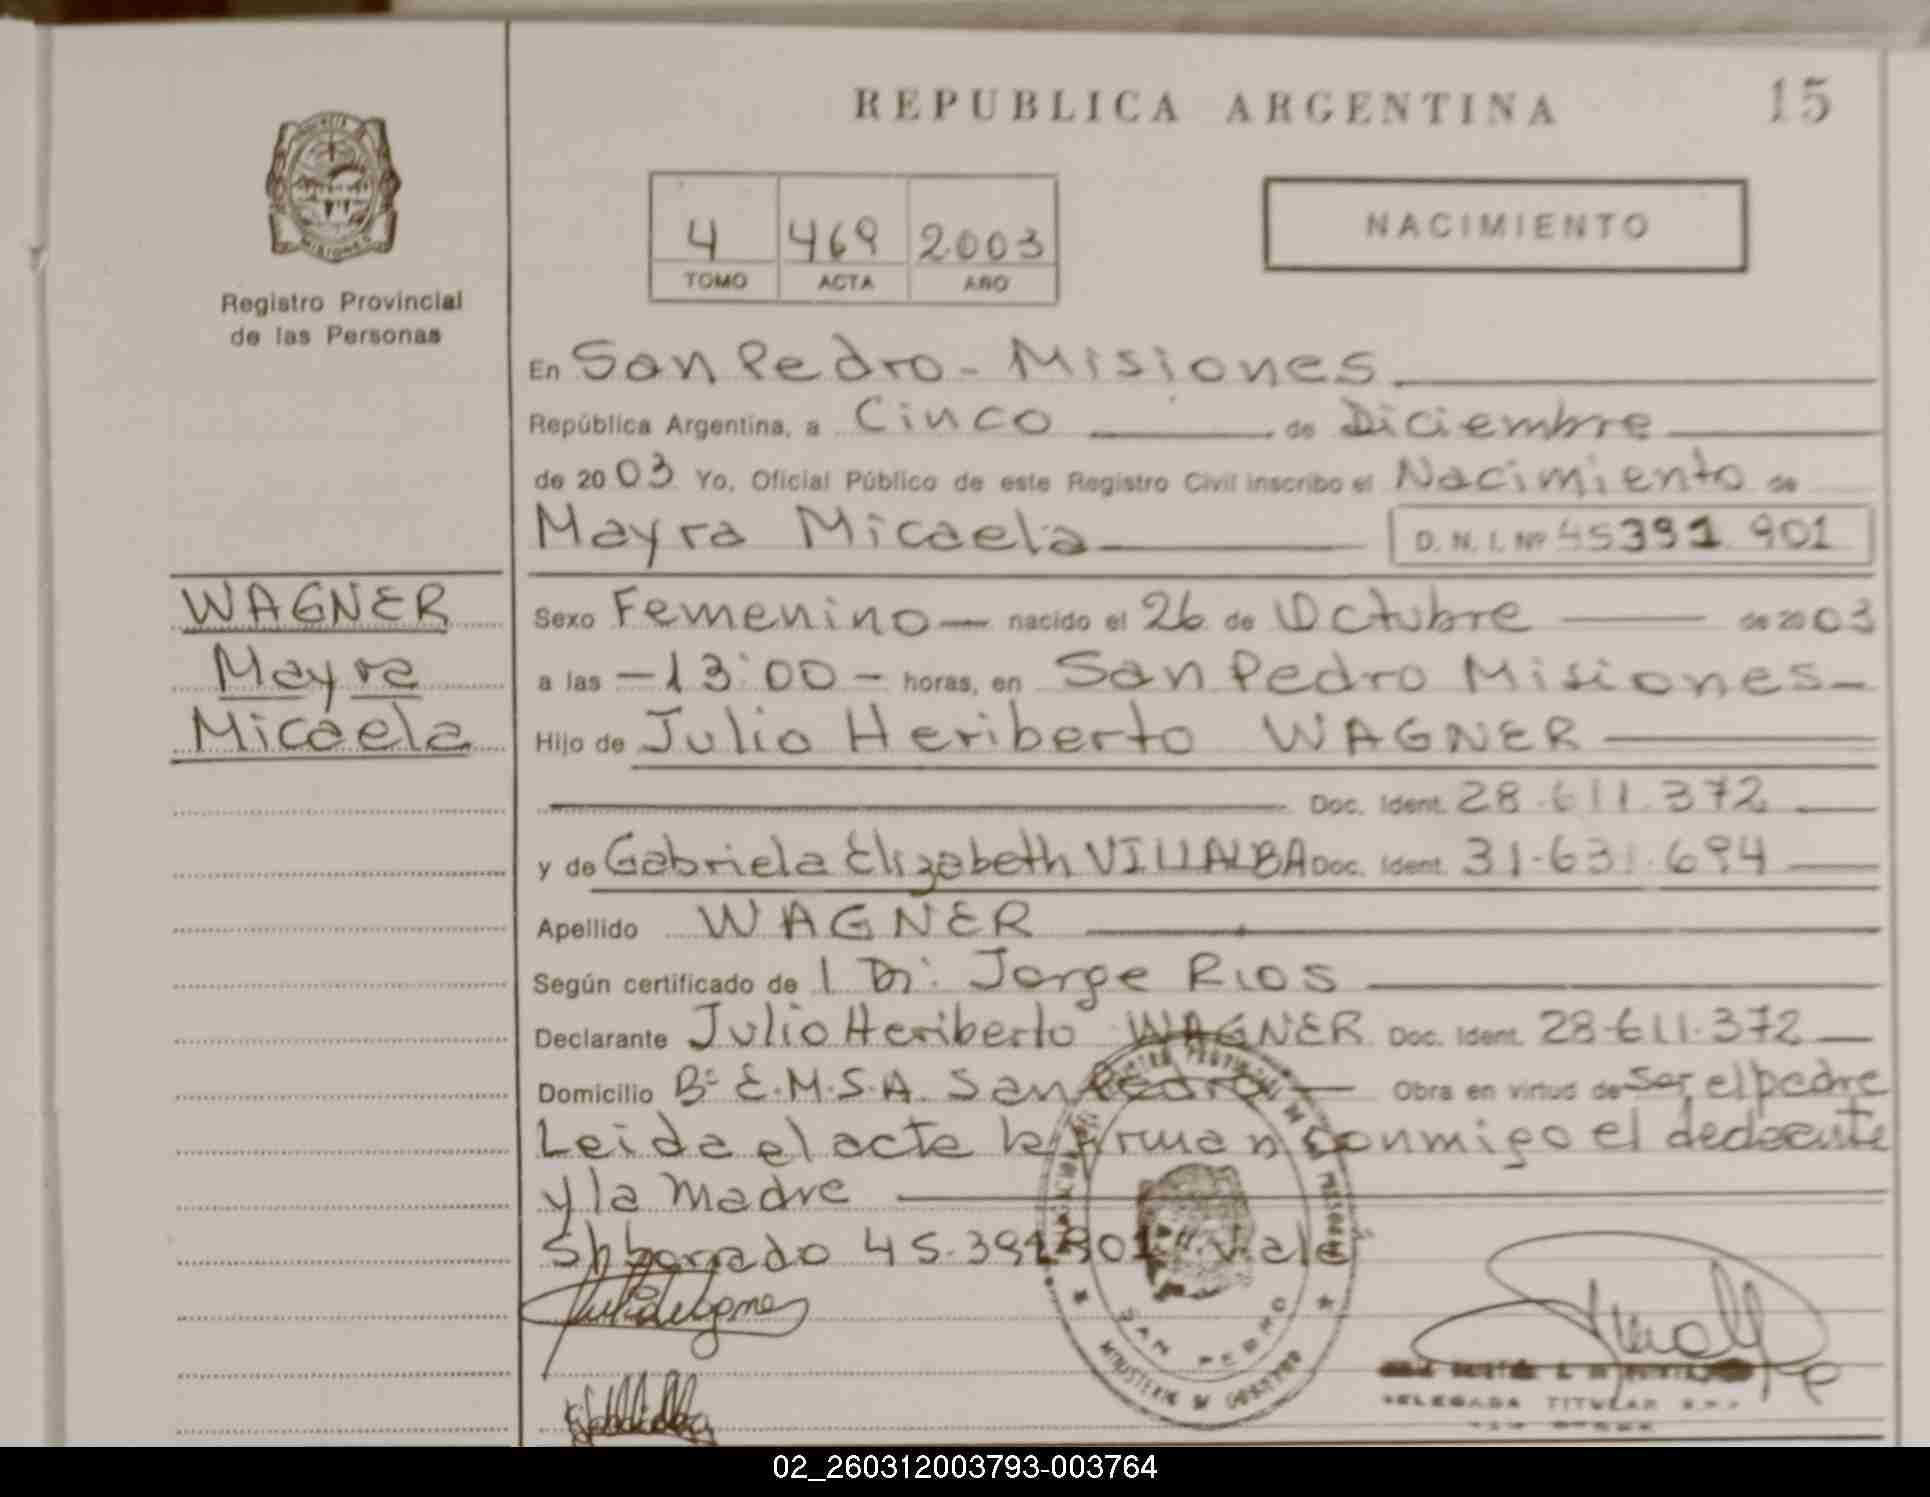 REPUBLICA ARGENTINA
15
4 469 2003
TOMO ACTA AÑO
NACIMIENTO
MISIONES
Registro Provincial
de las Personas
En San Pedro - Misiones
República Argentina, a Cinco de Diciembre
de 2003 Yo, Oficial Público de este Registro Civil inscribo el Nacimiento de
Mayra Micaela D. N. I. Nº 45391 901
WAGNER
Mayra
Micaela
Sexo Femenino — nacido el 26 de Octubre de 2003
a las - 13:00 - horas, en San Pedro Misiones -
Hijo de Julio Heriberto WAGNER
Doc. Ident. 28.611.372
y de Gabriela Elizabeth VILLALBA Doc. Ident. 31.631.694
Apellido WAGNER
Según certificado de Jorge RIOS
Declarante Julio Heriberto WAGNER Doc. Ident. 28.611.372
Domicilio Bº E.M.S.A. San Pedro — Obra en virtud de ser el padre
Leida el acta la firman conmigo el
y la madre
borrado 45.391901" vale
SAN PEDRO
MINISTERIO DE GOBIERNO
DELEGADA TITULAR
02_260312003793-003764